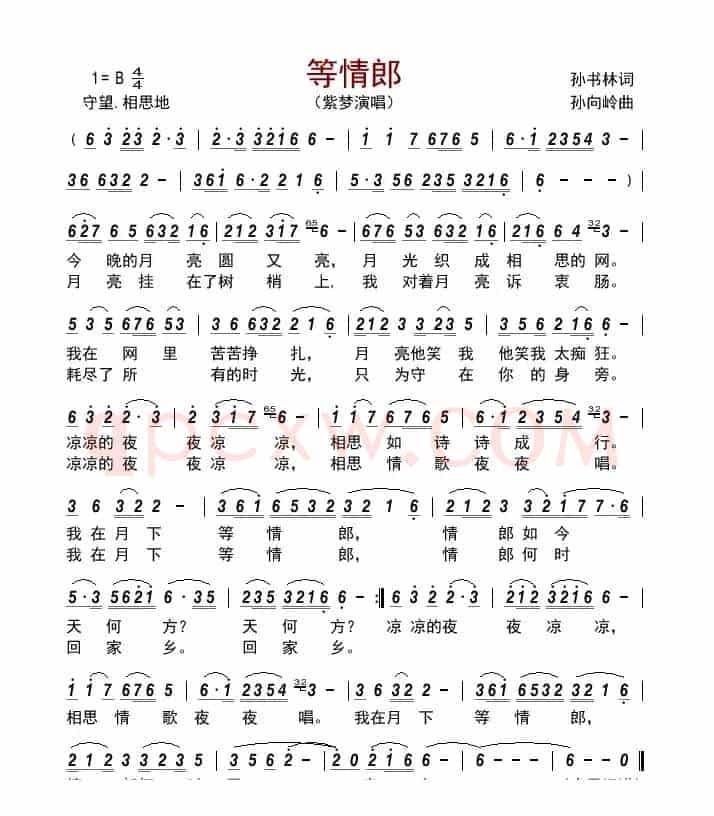 等情郎
1= B 4/4
孙书林词
守望.相思地
（紫梦演唱）
孙向岭曲
( 6 3 23 2·3 | 2·3 3216 6 - | 1 1 7 6765 | 6·1 2354 3 |
36 632 2 - | 361 6·2 21 6 | 5·3 56 235 3216 | 6 - - - ) |
627 6 5 632 16 | 212 312 317 65 6 - | 676 53 632 16 | 216 6 4 32 3 - |
今 晚的月 亮 圆 又 亮, 月 光 织 成 相 思 的 网。
月 亮 挂 在了树 梢 上. 我 对着月 亮 诉 衷 肠。
5 3 5 676 53 | 3 6 632 2 1 6 | 212 3 3 235 | 3 5 6 2 16 6 - |
我 在 网 里 苦苦挣 扎, 月 亮他笑 我 他笑我 太痴 狂。
耗尽了 所 有的时 光, 只 为守 在 你 的 身 旁。
6 3 2 2·3 | 2 317 65 6 - | 1 1 7 6765 | 6·1 2354 32 3 - |
凉凉的 夜 夜 凉 凉, 相思 如 诗 诗 成 行。
凉凉的 夜 夜 凉 凉, 相思 情 歌 夜 夜 唱。
3 6 322 2 - | 361 6532 321 6 | 212 3 32177·6 |
我 在 月 下 等 情 郎, 情 郎 如 今
我 在 月 下 等 情 郎, 情 郎 何 时
5·3 5621 6·35 | 235 3216 6 - :| 6 3 2 2·3 | 212 3216 6 - |
天 何 方? 天 何 方? 凉 凉的 夜 夜 凉 凉,
回 家 乡。 回 家 乡。
1 1 7 6765 | 6·1 2354 32 3 - | 3 6 2 2 - | 361 6532 321 6 |
相思 情 歌 夜 夜 唱。 我在月 下 等 情 郎,
212 3 3235 | 3 5 6 2 - | 20 216 6 - | 6 - - - | 6 - - 0 ‖
qpcxw.COM